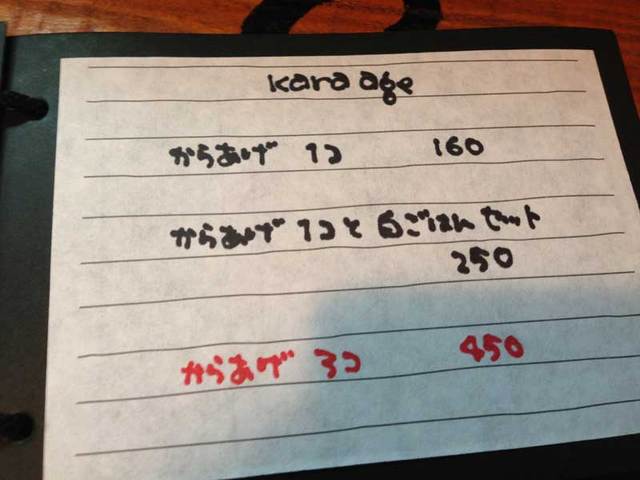 kara age
からあげ 1コ 160
からあげ 1コと 白ごはんセット
250
からあげ 3コ 450